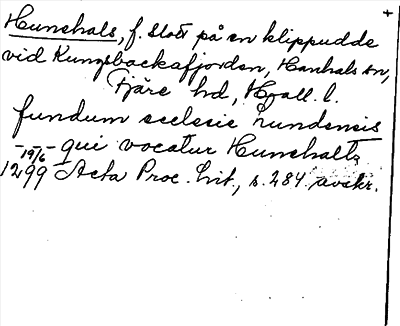 +
Hunehals, f. slott på en klippudde
vid Kungsbackafjorden, Hanhals sn,
Fjäre hd, Hall. l.
fundum ecclesie Lundensis
-19/6- qui vocatur Hunehaltz
1299 Acta Proc. Lit., s. 284. avskr.